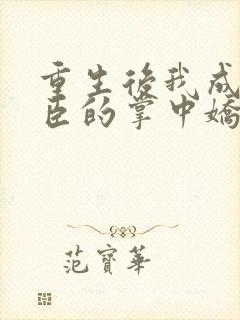 重生後我成
臣的掌中嬌
范寶華